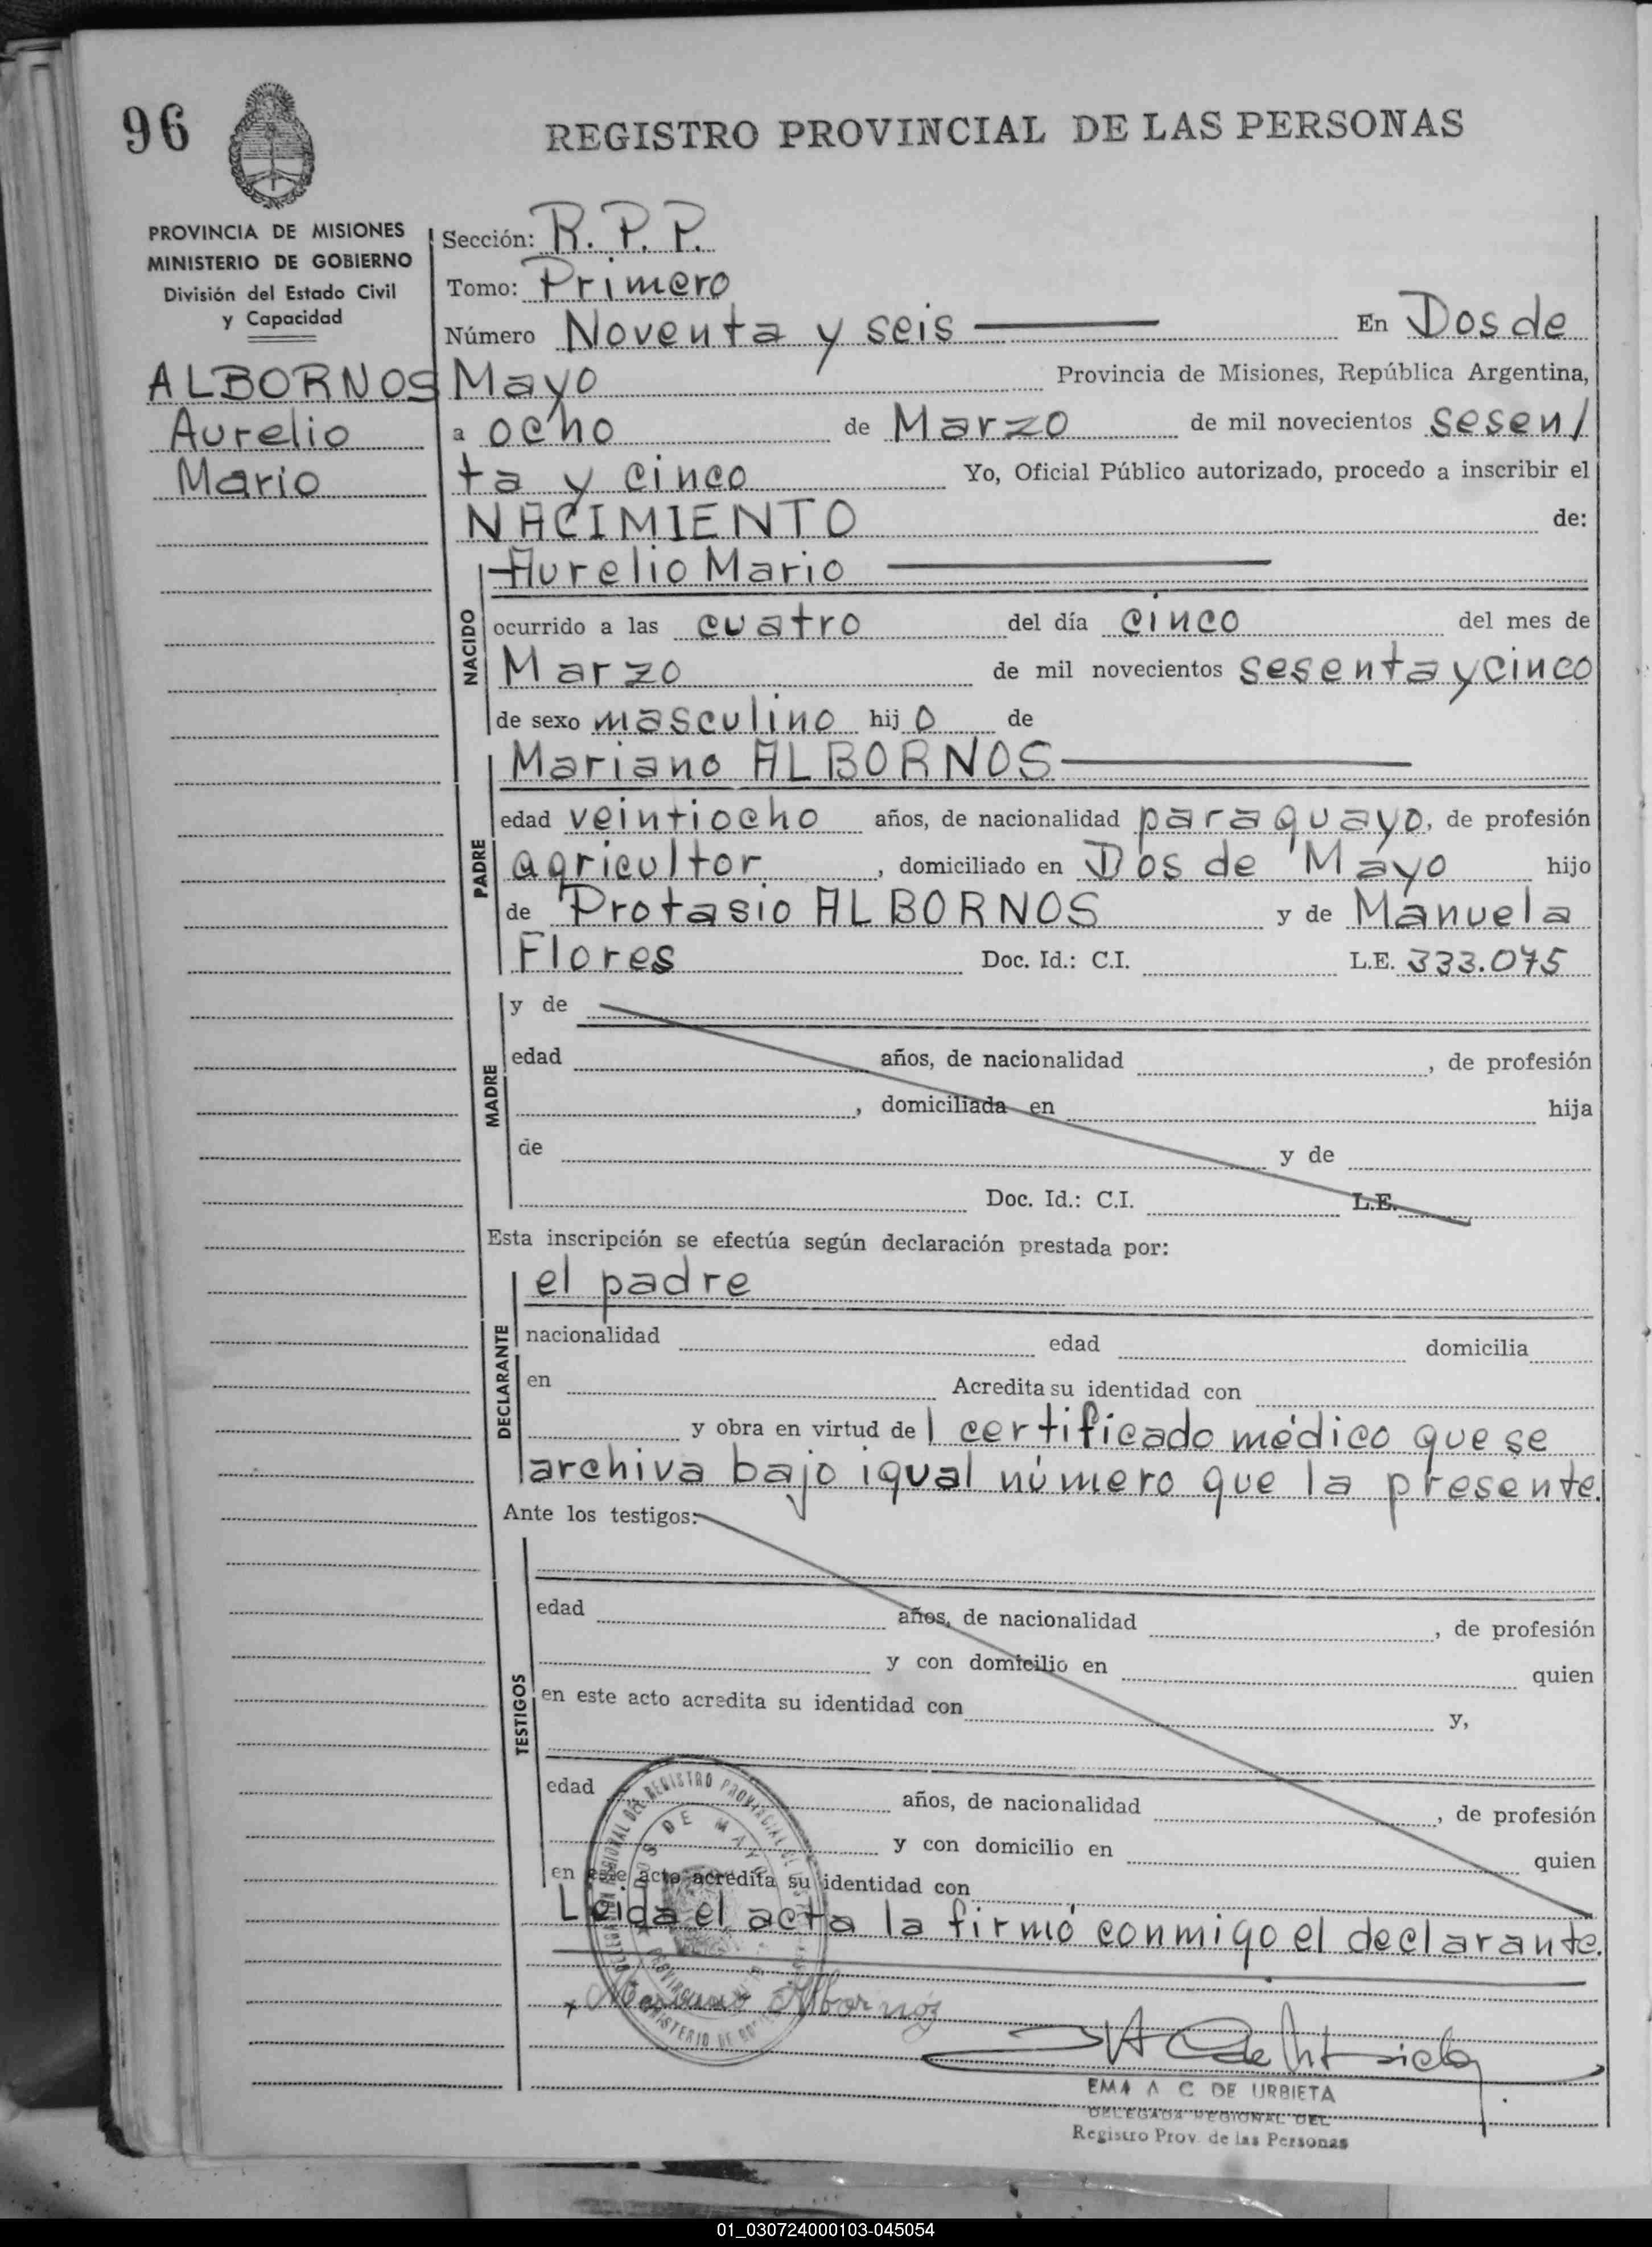 96
REGISTRO PROVINCIAL DE LAS PERSONAS
PROVINCIA DE MISIONES
MINISTERIO DE GOBIERNO
División del Estado Civil
y Capacidad
ALBORNOS
Aurelio
Mario
Sección: R. P. P.
Tomo: Primero
Número Noventa y seis En Dos de
Mayo Provincia de Misiones, República Argentina,
a ocho de Marzo de mil novecientos sesen/
ta y cinco Yo, Oficial Público autorizado, procedo a inscribir el
NACIMIENTO de:
NACIDO
Aurelio Mario
ocurrido a las cuatro del día cinco del mes de
Marzo de mil novecientos sesenta y cinco
de sexo masculino hij o de
PADRE
Mariano ALBORNOS
edad veintiocho años, de nacionalidad paraguayo, de profesión
agricultor, domiciliado en Dos de Mayo hijo
de Protasio ALBORNOS y de Manuela
Flores Doc. Id.: C.I. L.E. 333.075
MADRE
y de
edad años, de nacionalidad , de profesión
, domiciliada en hija
de y de
Doc. Id.: C.I. L.E.
Esta inscripción se efectúa según declaración prestada por:
DECLARANTE
el padre
nacionalidad edad domicilia
en Acredita su identidad con
y obra en virtud de l certificado médico que se
archiva bajo igual número que la presente.
Ante los testigos:
TESTIGOS
edad años, de nacionalidad , de profesión
y con domicilio en quien
en este acto acredita su identidad con y,
edad años, de nacionalidad , de profesión
y con domicilio en quien
en este acto acredita su identidad con
Leida el acta la firmó conmigo el declarante.
DOS DE MAYO
Mariano Albornoz
EMA A C DE URBIETA
DELEGADA REGIONAL DEL
Registro Prov. de las Personas
01_030724000103-045054